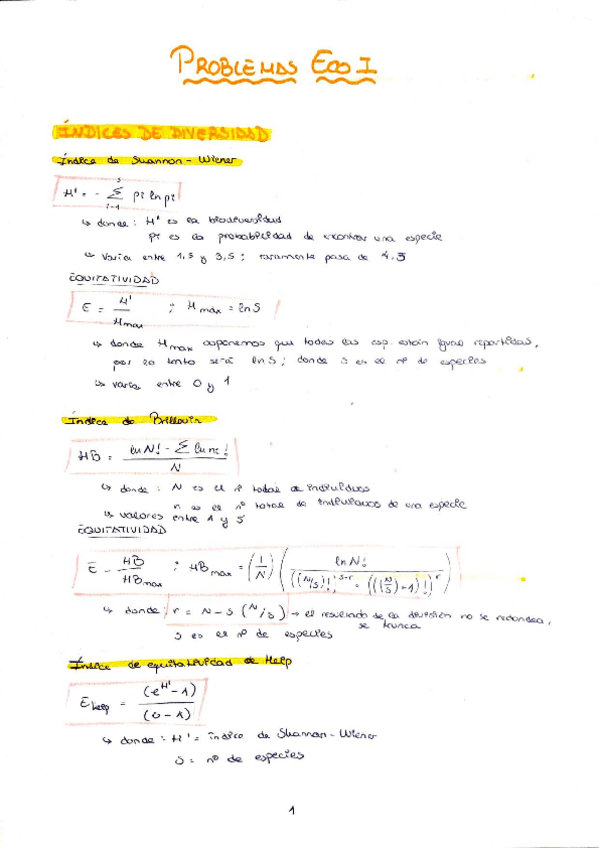 PROBLEMAS ECO I
ÍNDICES DE DIVERSIDAD
Índice de Shannon - Wiener
H' = - Σ pi ln pi
↳ donde : H' es la biodiversidad
pi es la probabilidad de encontrar una especie
↳ Varía entre 1,5 y 3,5 ; raramente pasa de 4,5
EQUITATIVIDAD
E = H' / Hmax ; Hmáx = ln S
↳ donde Hmax suponemos que todas las esp. están igual repartidas,
por lo tanto será ln S ; donde S es el nº de especies
↳ varía entre 0 y 1
Índice de Brillouin
HB = (ln N! - Σ ln ni!) / N
↳ donde : N es el nº total de individuos
n es el nº total de individuos de una especie
↳ valores entre 1 y 5
EQUITATIVIDAD
E = HB / HBmax ; HBmax = (1/N) (ln N! / (((N/S)!)^(S-r) · (((N/S)+1)!)^r))
↳ donde : r = N - S (N/S) → el resultado de la división no se redondea,
se trunca
S es el nº de especies
Índice de equitatividad de Heip
EHeip = (e^H' - 1) / (S - 1)
↳ donde : H' = índice de Shannon - Wiener
S = nº de especies
1